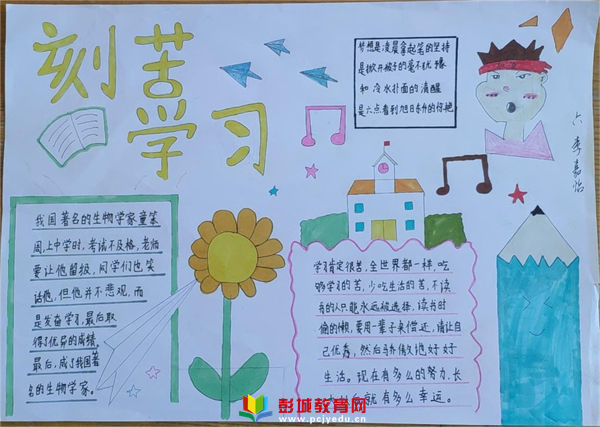 刻苦学习
梦想是凌晨拿起笔的坚持
是掀开被子的毫不犹豫
和冷水扑面的清醒
是六点看到旭日东升的惊艳
六 李嘉怡
我国著名的生物学家童第
周,上中学时,考试不及格,老师
要让他留级,同学们也笑
话他,但他并不悲观,而
是发奋学习,最后取
得了优异的成绩,
最后,成了我国著
名的生物学家。
学习肯定很苦,全世界都一样,吃
够学习的苦,少吃生活的苦,不读
书的人只能永远被选择,读书时
偷的懒,要用一辈子来偿还,请让自
己优秀,然后骄傲地好好
生活。现在有多么的努力,长
就有多么幸运。
彭城教育网
www.pcjyedu.cn